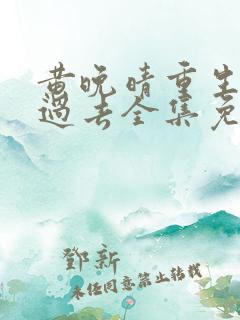 黄晚晴重生
过去全集免
鄧新
未经同意禁止转载